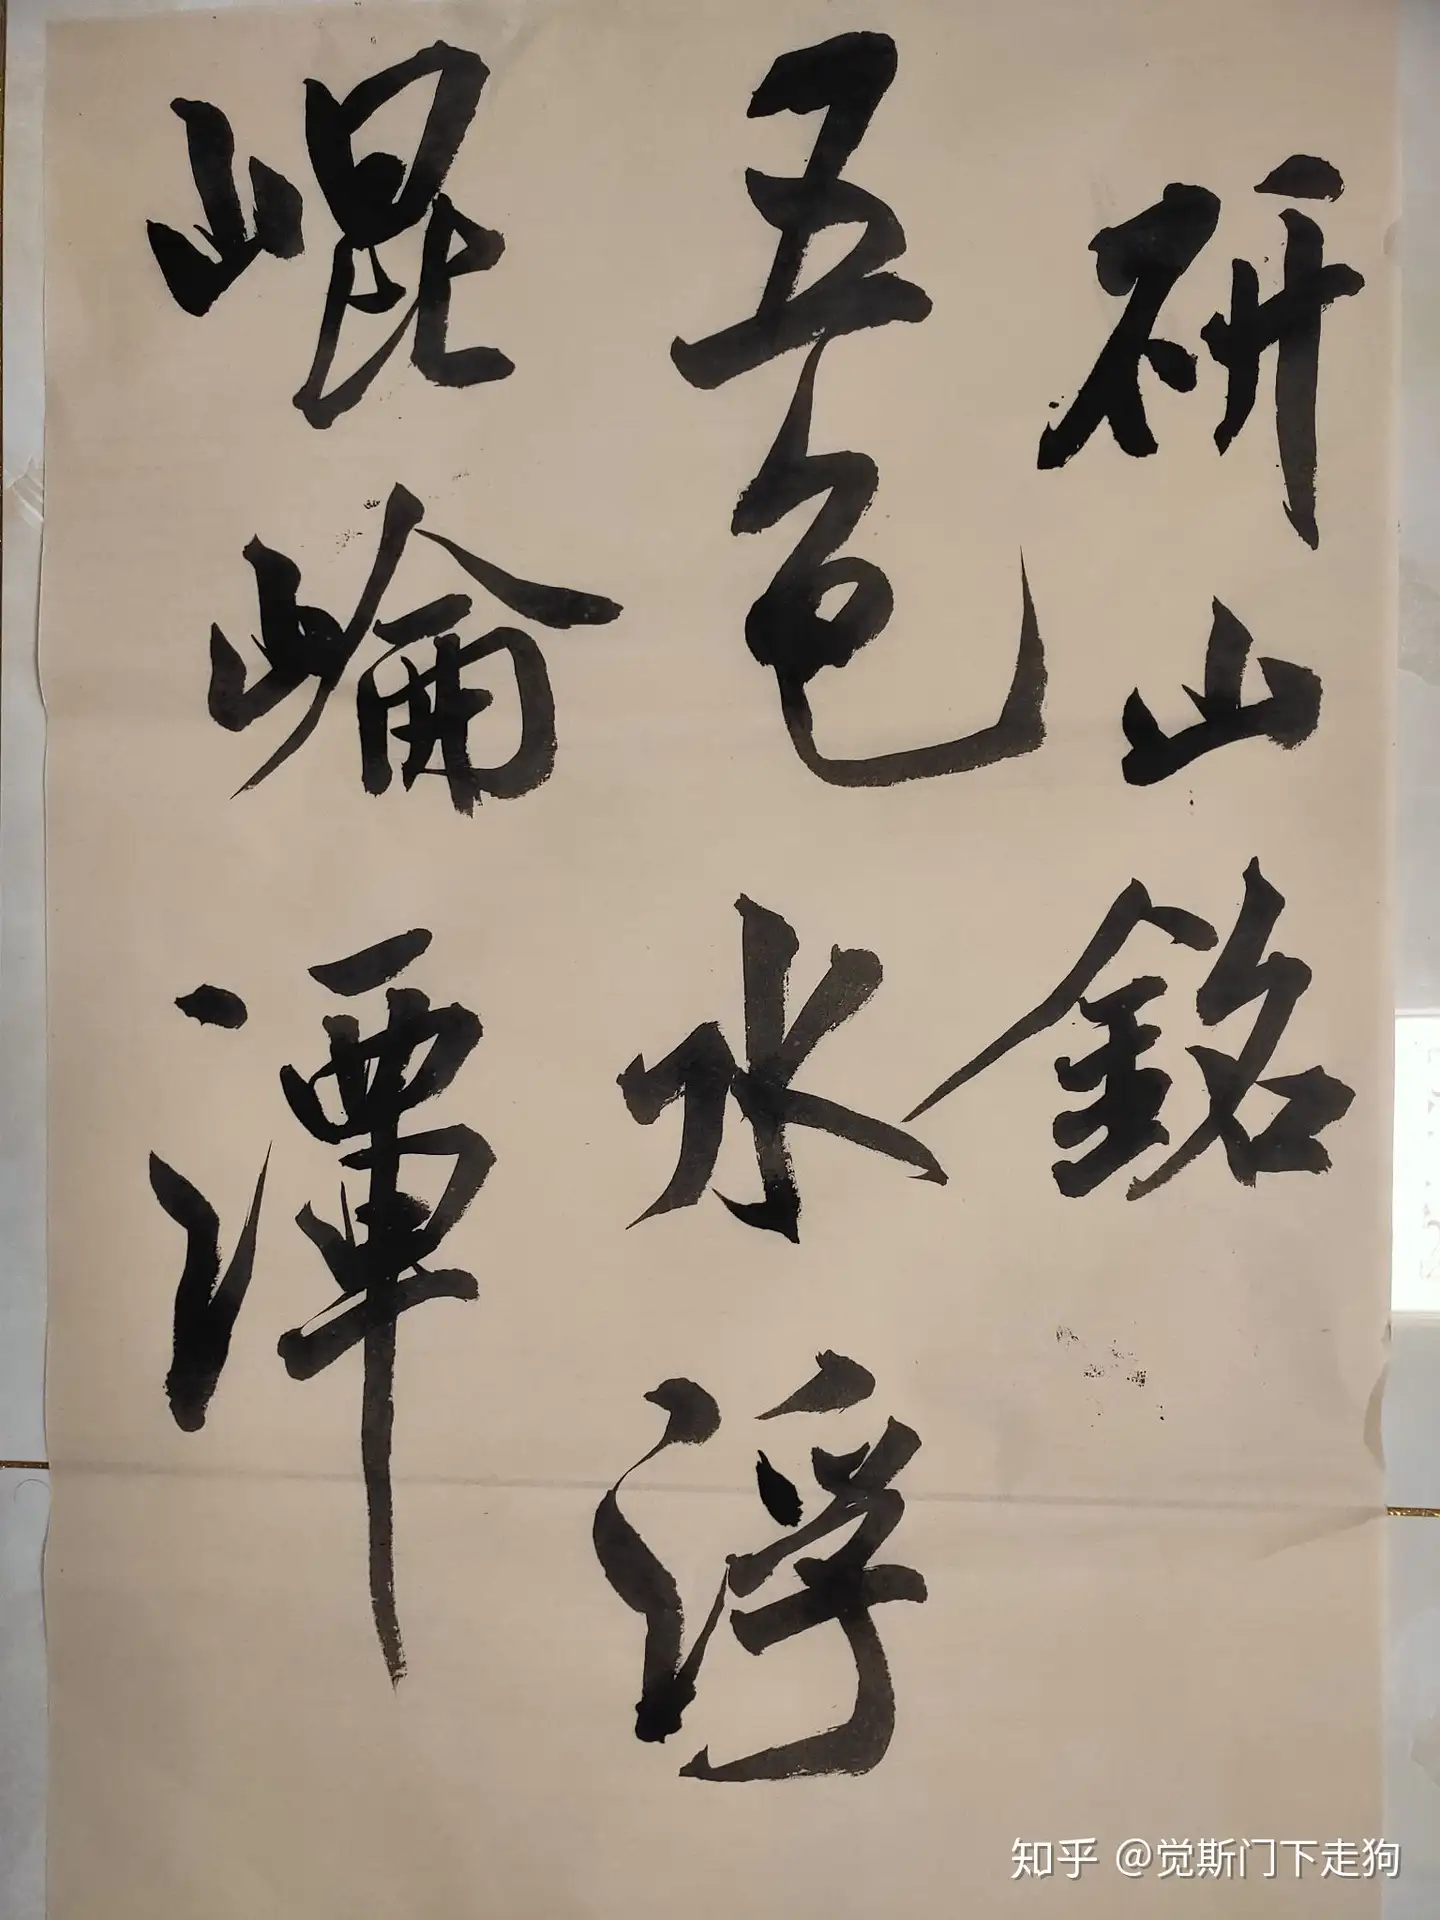 研山銘
五色水浮
崐崘潭
知乎 @觉斯门下走狗